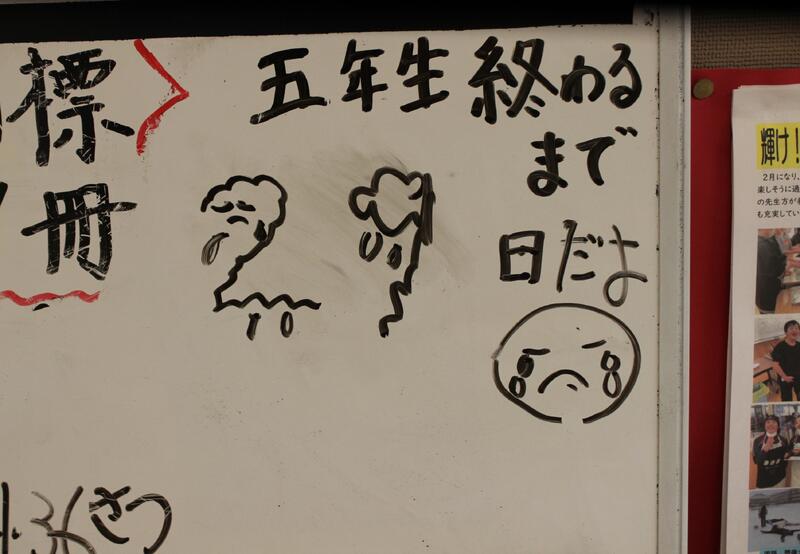 標
冊
五年生終わる
まで
29
日だよ
さつ
輝け!
2月になり、
楽しそうに過
の先生方が
も充実してい